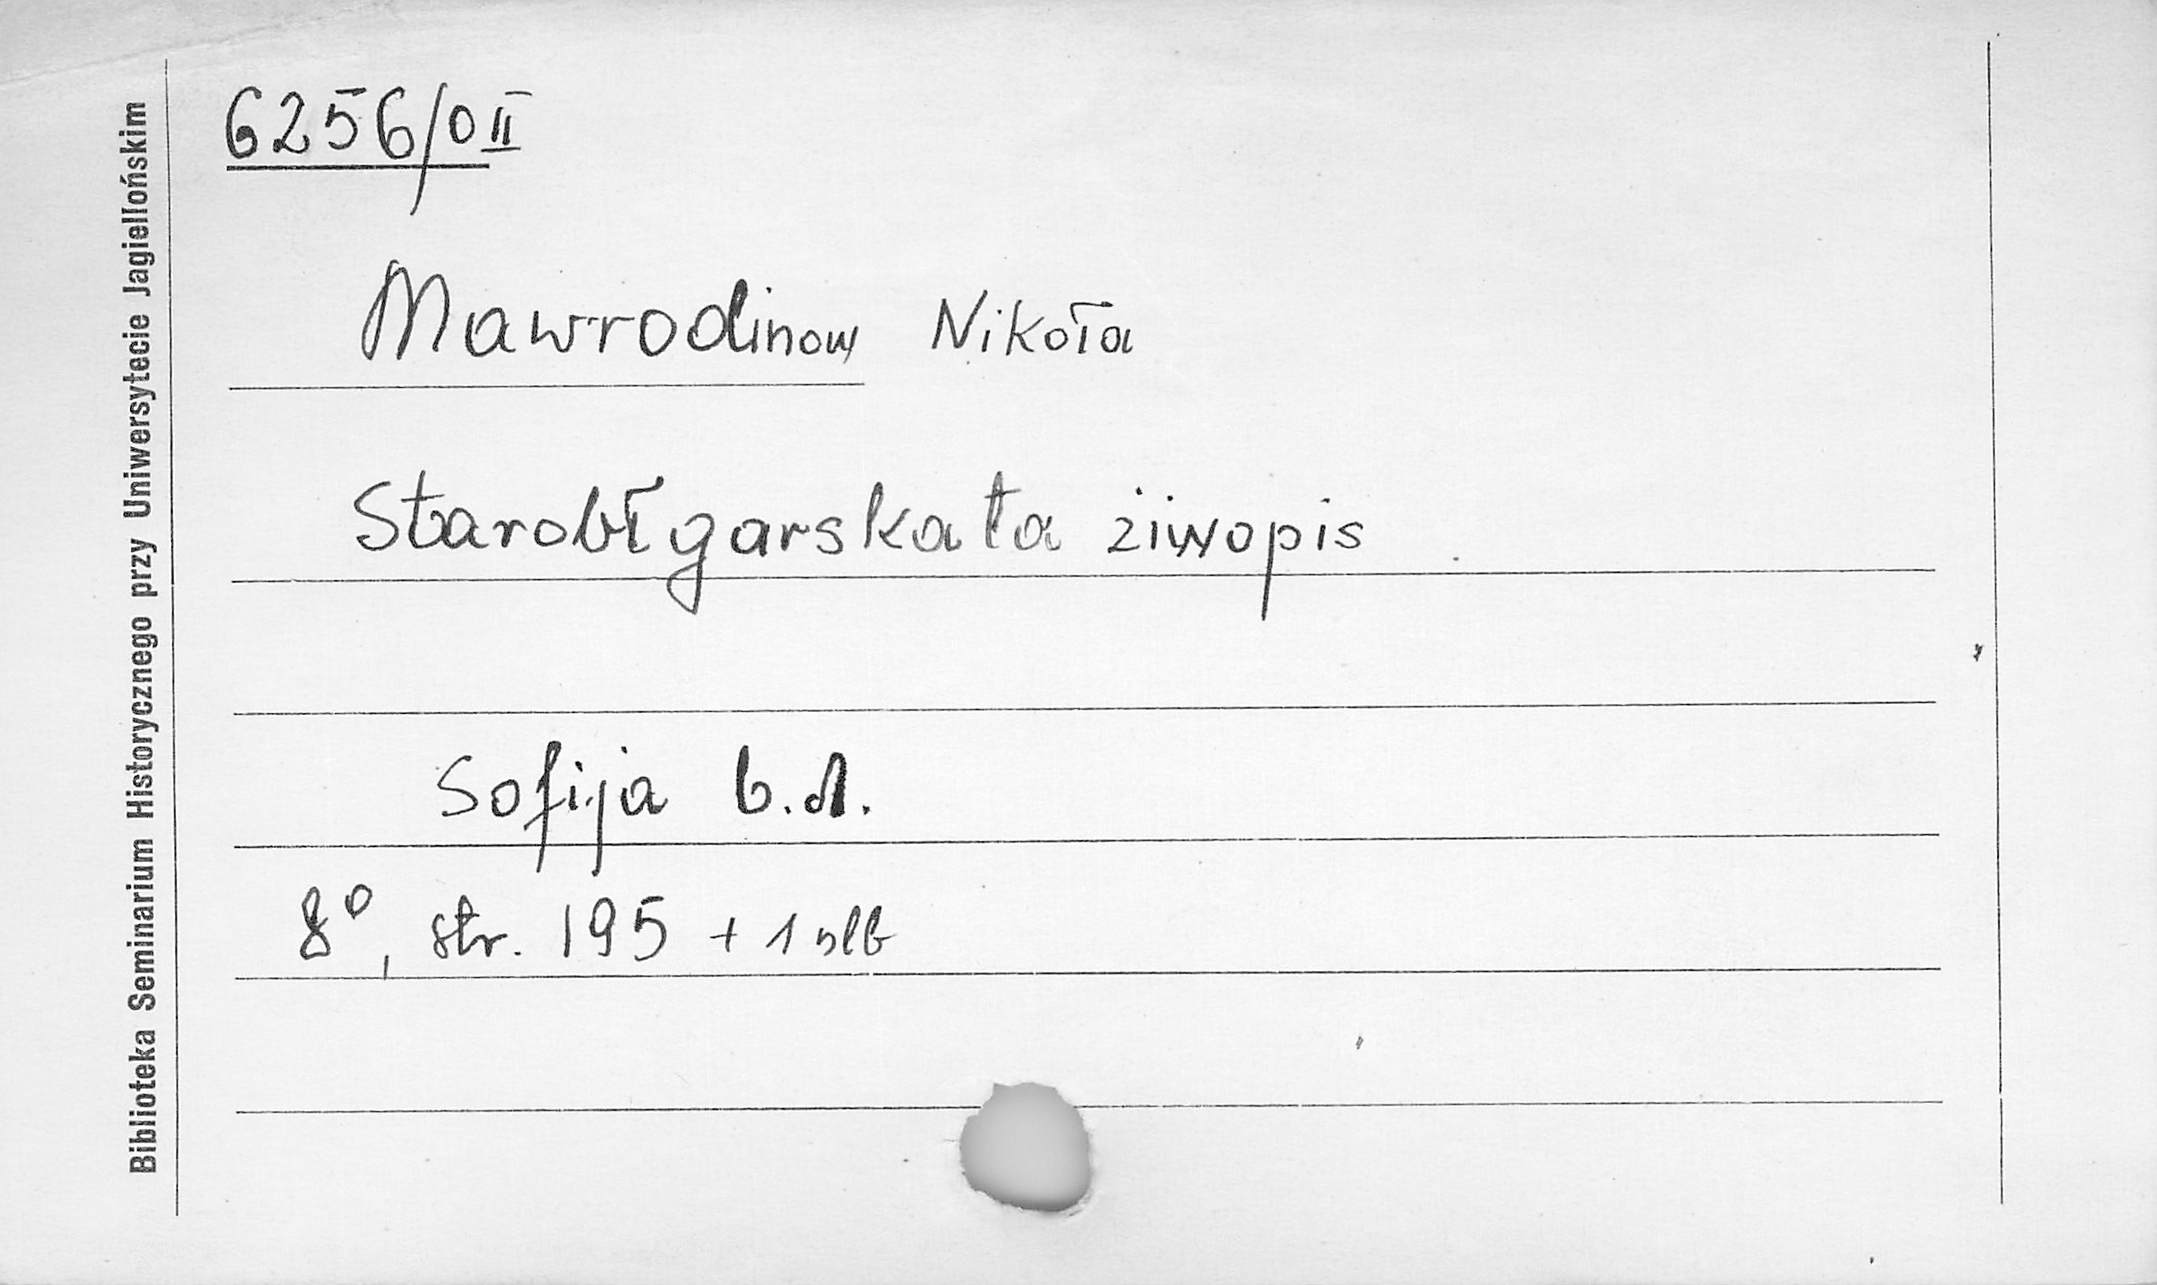 6256/0 II
Mawrodinow Nikoła
Starobłgarskata żiwopis
Sofija b.d.
8°, str. 195 + 1 nlb
Biblioteka Seminarium Historycznego przy Uniwersytecie Jagiellońskim